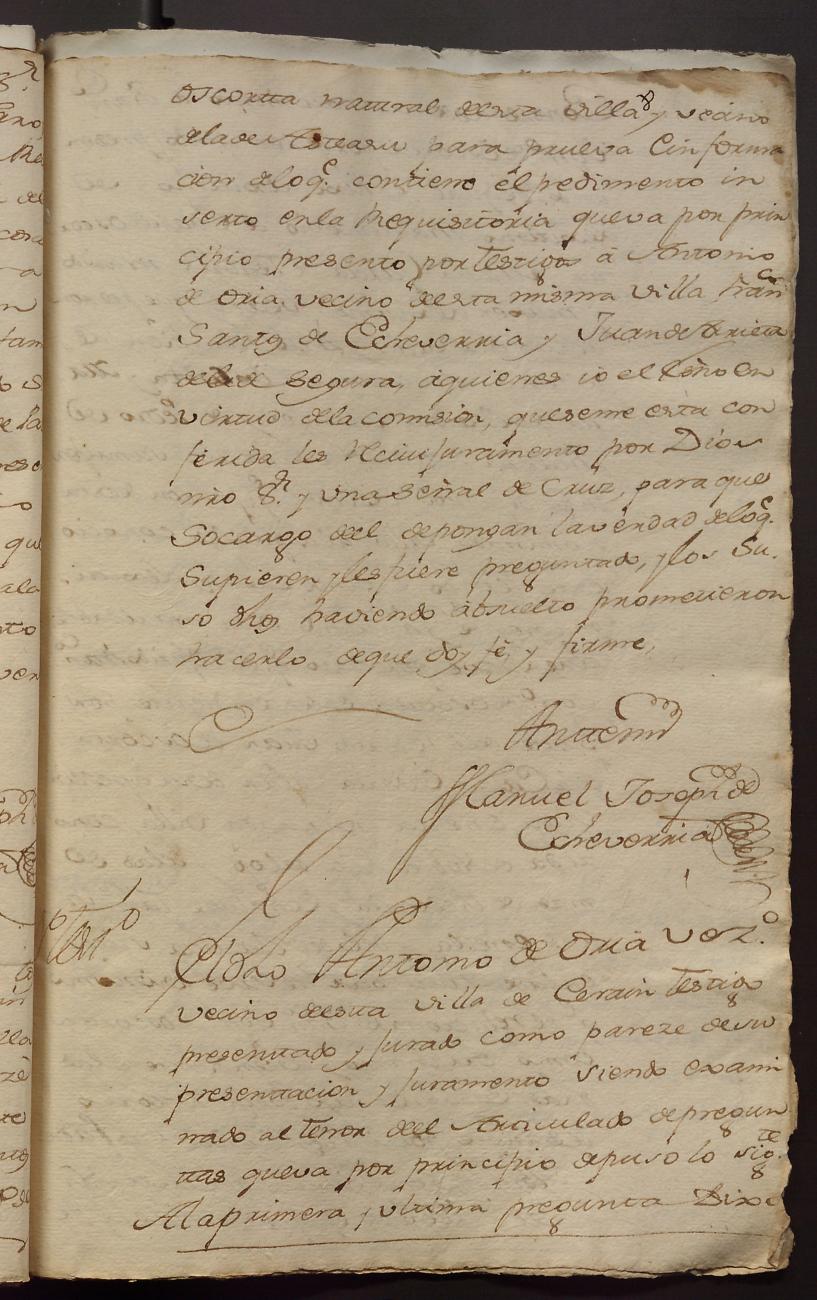 oscortta natural desta villa y vecino
dela de Asteasu para prueva e informa
cion deloq.e contiene el pedimento in
serto enla Requisitoria queva por prin
cipio presento por testigos â Antonio
de Oria vecino desta misma villa Fran.co
Santos de Echeverria y Juan de Arieta
dela de Segura, aquienes io el es.no en
virtud dela comision, queseme esta con
ferida les Reciui Juramento por Dios
nro S.r y una señal de Cruz, para que
Socargo del depongan laverdad deloq.e
Supieren y les fuere preguntado, y los Su.
so dhos haviendo absuelto prometieron
hacerlo deque doy fê y firme,
Anttemi
Manuel Joseph de
Echeverria
1.o test.o
El dho Antonio de Oria vez.o
vecino desta villa de Cerain testigo
presenttado y Jurado como pareze de su
presenttacion y Juramento siendo exami
nado al tenor del Articulado de pregun
ttas queva por principio depuso lo sig.te
Ala primera y ultima pregunta Dixo